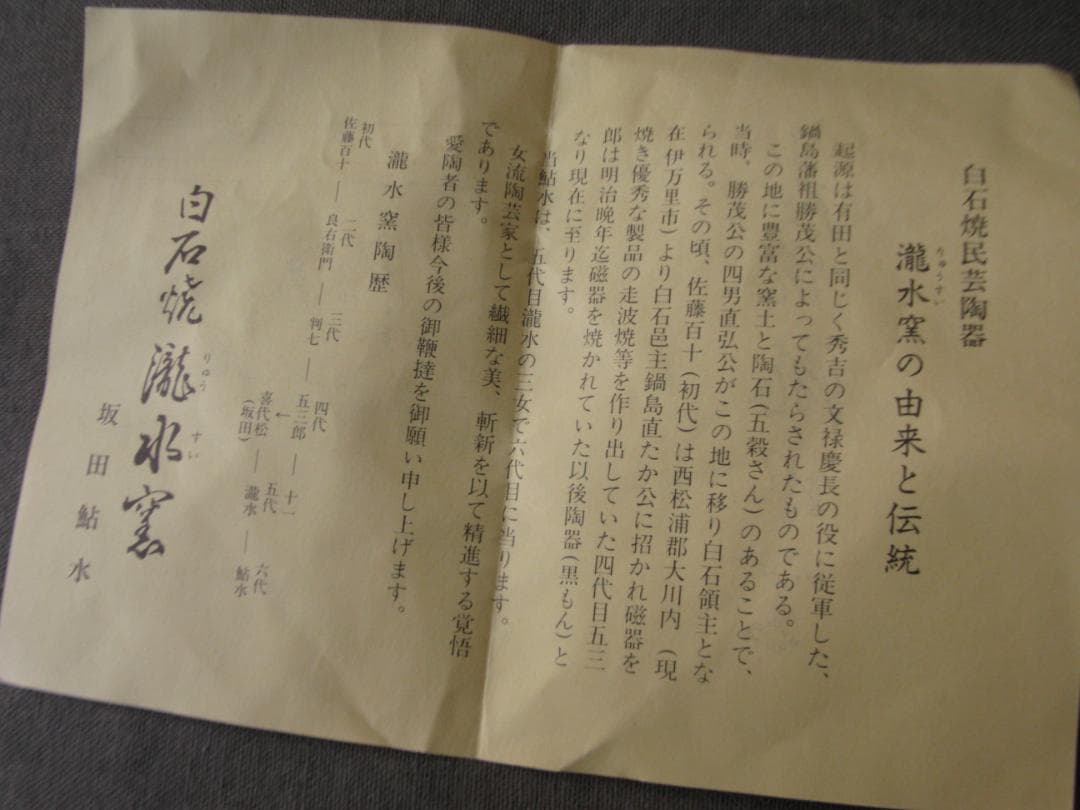 白石焼民芸陶器
瀧水窯の由来と伝統
りゅうすい
起源は有田と同じく秀吉の文禄慶長の役に従軍した、
鍋島藩祖勝茂公によってもたらされたものである。
この地に豊富な窯土と陶石(五穀さん)のあることで、
当時、勝茂公の四男直弘公がこの地に移り白石領主とな
られる。その頃、佐藤百十(初代)は西松浦郡大川内(現
在伊万里市)より白石邑主鍋島直たか公に招かれ磁器を
焼き優秀な製品の走波焼等を作り出していた四代目五三
郎は明治晩年迄磁器を焼かれていた以後陶器(黒もん)と
なり現在に至ります。
当鮎水は、五代目瀧水の三女で六代目に当ります。
女流陶芸家として繊細な美、斬新を以て精進する覚悟
であります。
愛陶者の皆様今後の御鞭撻を御願い申し上げます。
瀧水窯陶歴
初代 二代 三代 四代
佐藤百十―良右衛門―判七―五三郎―十一
←
五代 六代
喜代松―瀧水―鮎水
(坂田)
白石焼瀧水窯
りゅうすい
坂田鮎水